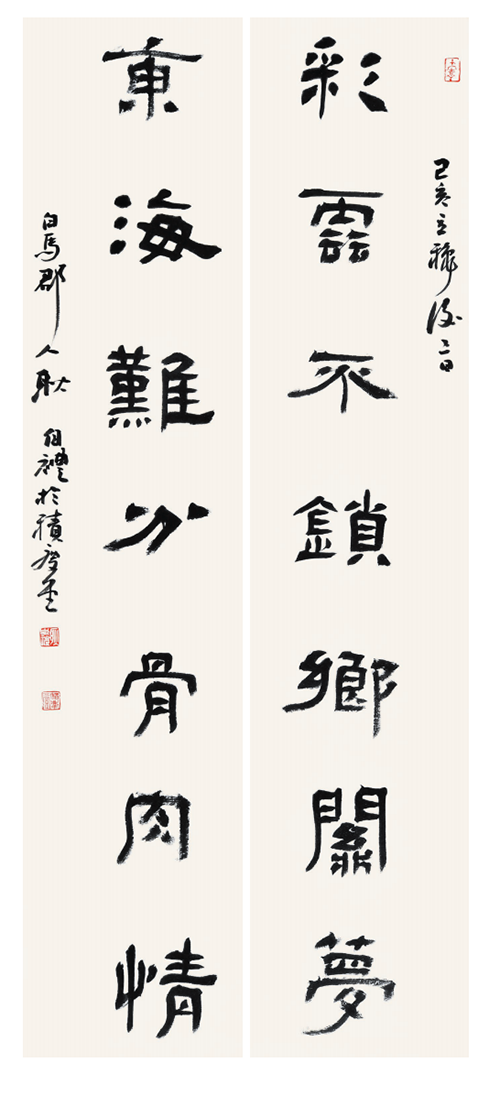 己亥立穐後二日
彩雲不鎖鄉關夢
東海難分骨肉情
白馬郡人耿自禮於積慶堂